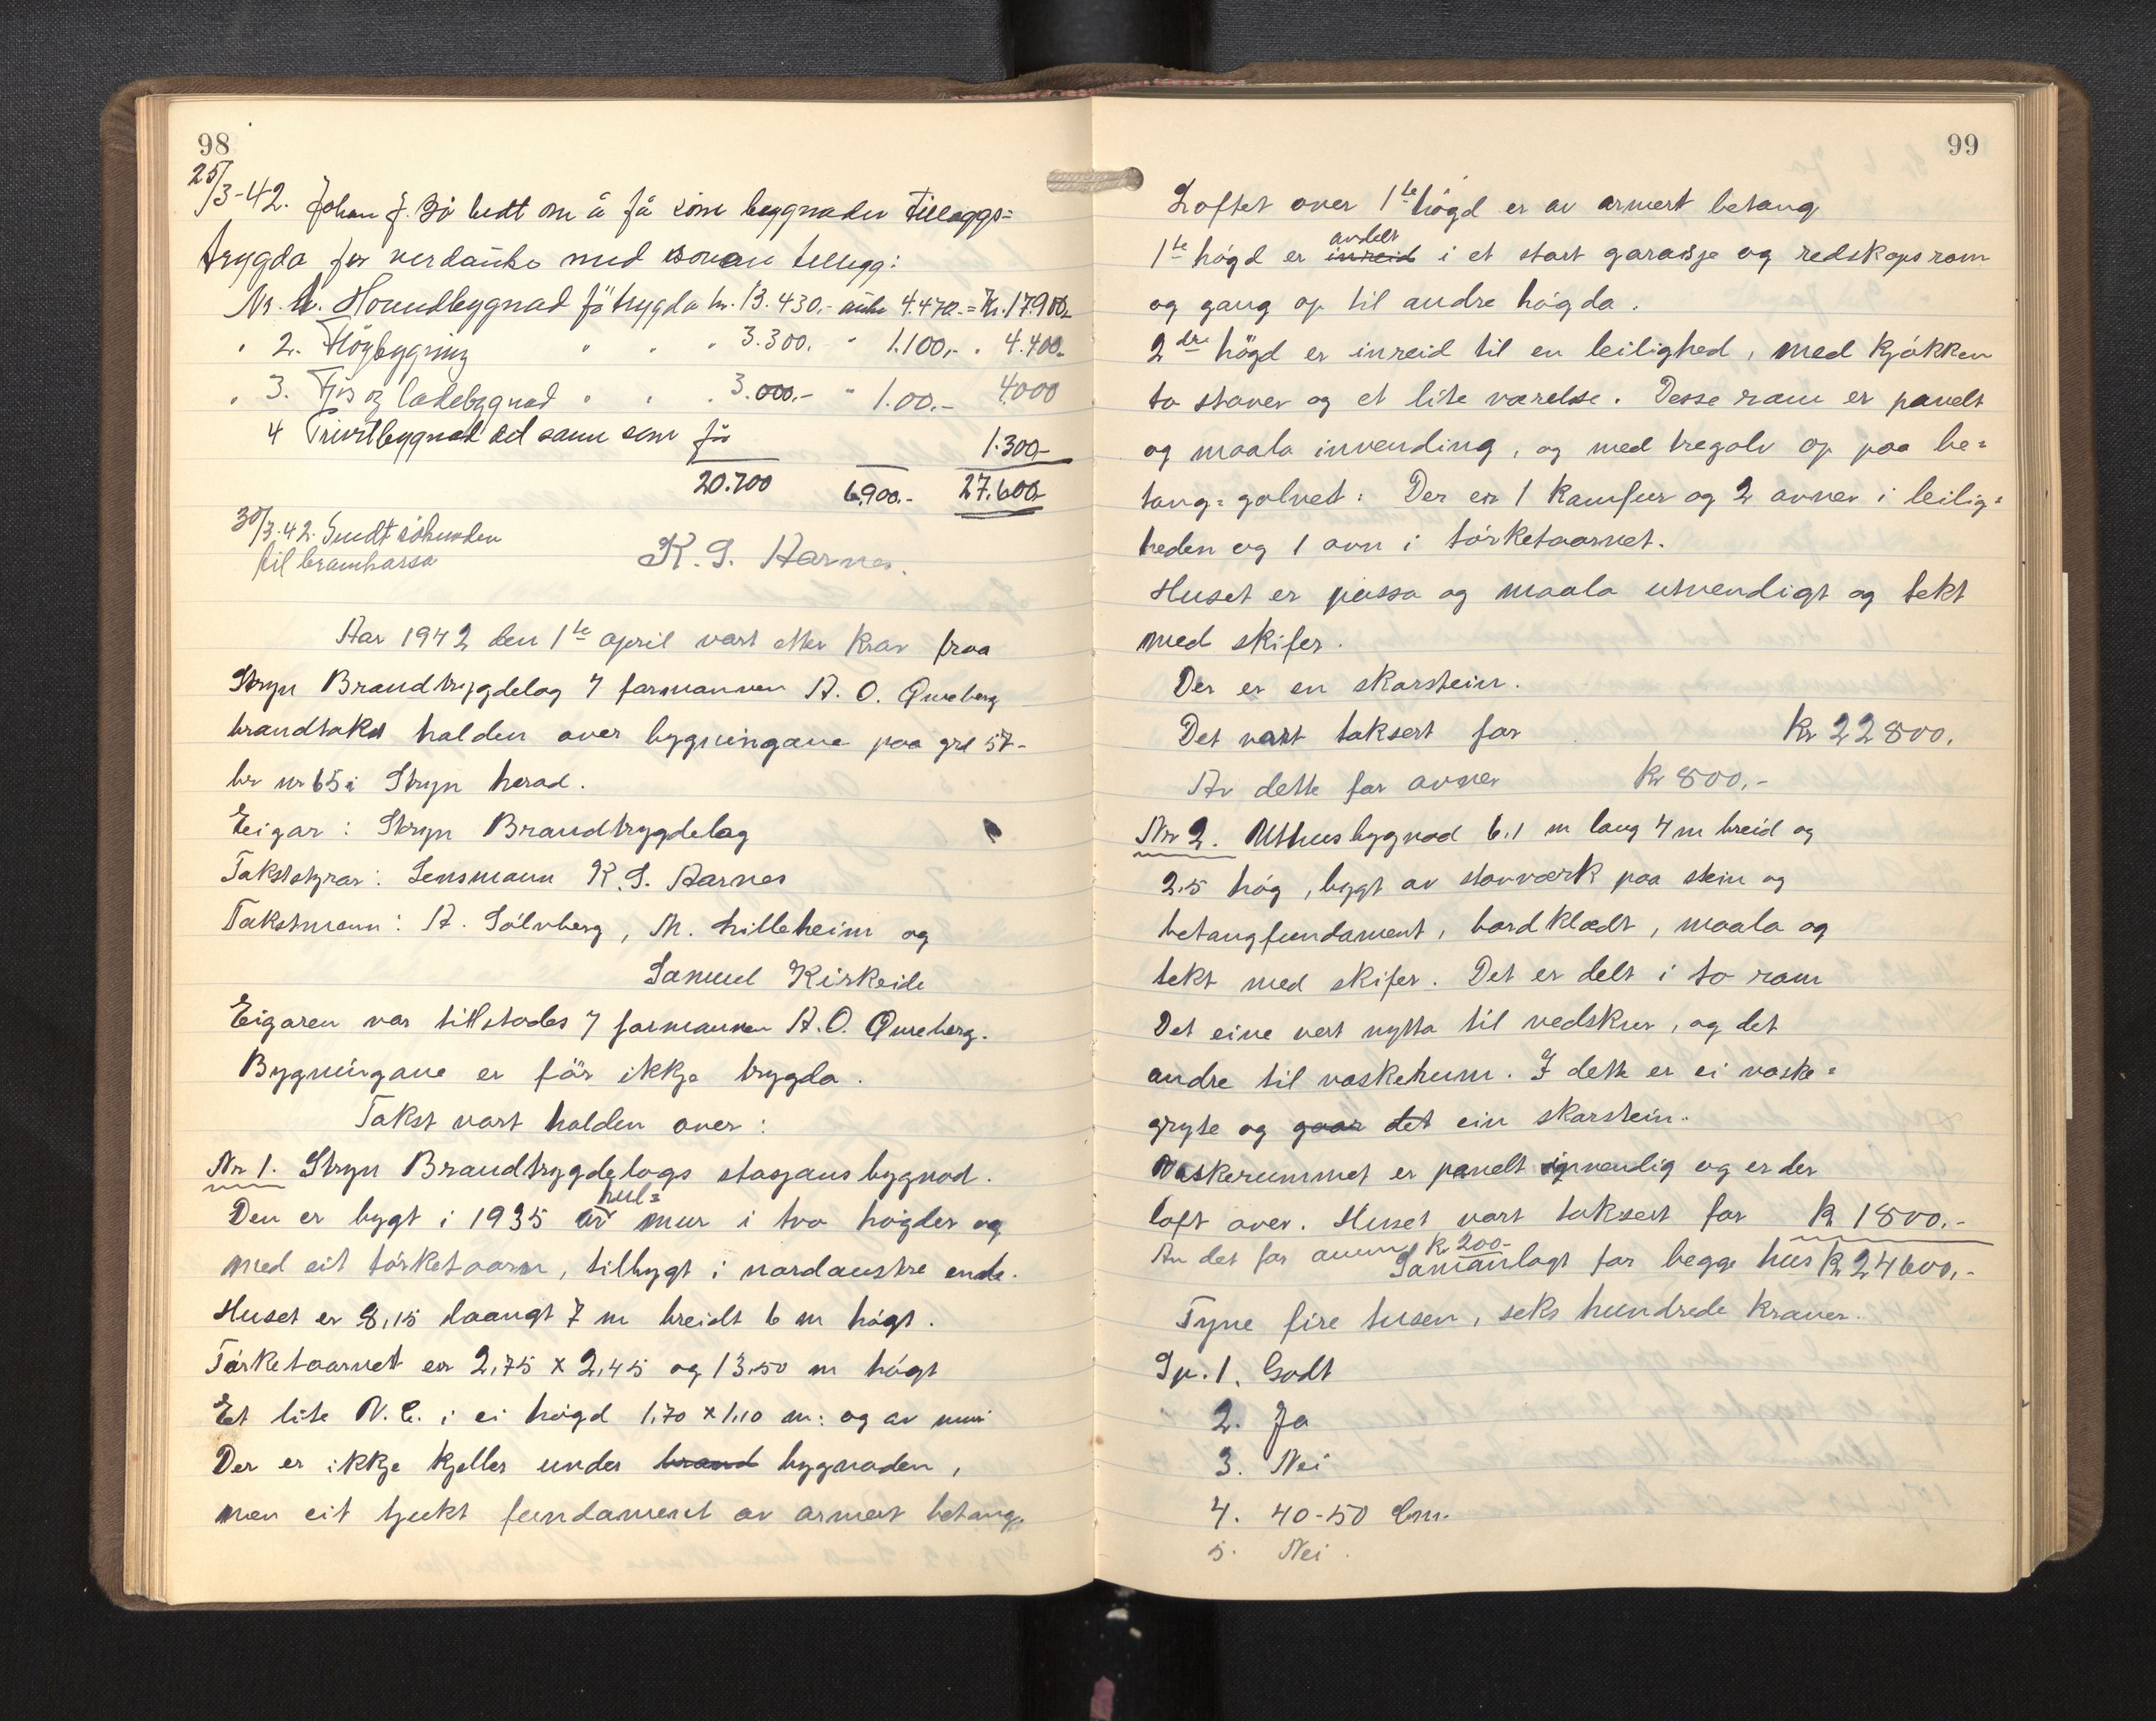 98
25/3-42. Johan J. Bö bedt om å få sine bygnader tilleggs=
trygda for verdauke med sovori tillegg:
Nr. 1. Hovudbygnad fö trygda kr. 13.430,- auke 4.470.- = Kr. 17.900,-
" 2. Flöybygning " " " 3.300. " 1.100,- " 4.400.-
" 3. Fjös og ladebygnad " " " 3.000.- " 1.00.- 4000
4 Trivilbygnad det same som för 1.300,-
20.700 6.900.- 27.600.-
30/3.42. Sendt söknaden
til bramkassa
K. S. Aarnes.
Aar 1942 den 1te april vart etter krav fraa
Stryn Brandtrygdelag v formannen A. O. Qvreberg
brandtakst halden over bygningane paa grd 57-
br nr 65 i Stryn herad.
Eigar: Stryn Brandtrygdelag
Takststyrar: Lensmann K. S. Aarnes
Takstmenn: A. Sölvberg, M. Lilleheim og
Samuel Kirkeide
Eigaren var tillstades v formannen A. O. Qvreberg.
Bygningane er för ikkje trygda.
Takst vart halden over:
Nr 1. Stryn Brandtrygdelags stasjons bygnod.
hul=
Den er bygt i 1935 av mur i tvo högder og
med eit törketaarn, tilbygt i nordaustre ende.
Huset er 8,15 laangt 7 m breidt 6 m högt.
Törketaarnet er 2,75 x 2,45 og 13,50 m högt
Eet lite V. C. i ei högd 1,70 x 1,10 m: og av mur
Der er ikkje kjeller under brand bygnaden,
men eit tjukt fundament av armert betong.
99
Loftet over 1te högd er av armert betong
avdelt
1te högd er inreid i et stort garasje og redskapsrom
og gang op til andre högda.
2dre högd er inreid til en leilighed, med kjökken
to stover og et lite værelse. Desse rom er panelt
og maala invending, og med tregolv op paa be=
tong=golvet: Der er 1 Kamfur og 2 avner i leilig=
heden og 1 ovn i törketaarnet.
Huset er pussa og maala utvendigt og tekt
med skifer.
Der er en skorstein.
Det vart taksert for Kr 22800.
Av dette for ovner Kr 800,-
Nr 2. Uthusbygnod 6.1 m lang 4 m breid og
2,5 hög, bygt av stavværk paa stein og
betongfundament, bordklædt, maala og
tekt med skifer. Det er delt i to rom
Det eine vert nytta til vedskur, og det
andre til vaskerum. I dette er ei vaske=
gryte og gaar det ein skorstein.
Vaskerummet er panelt invendig og er der
loft over. Huset vart taksert for Kr 1800.-
Av det for Kr 200-
Samanlagt for begge hus Kr 24600,-
Tyve fire tusen, seks hundrede kroner.
Sp. 1. Godt
2. Ja
3. Nei
4. 40-50 Cm.
5. Nei.